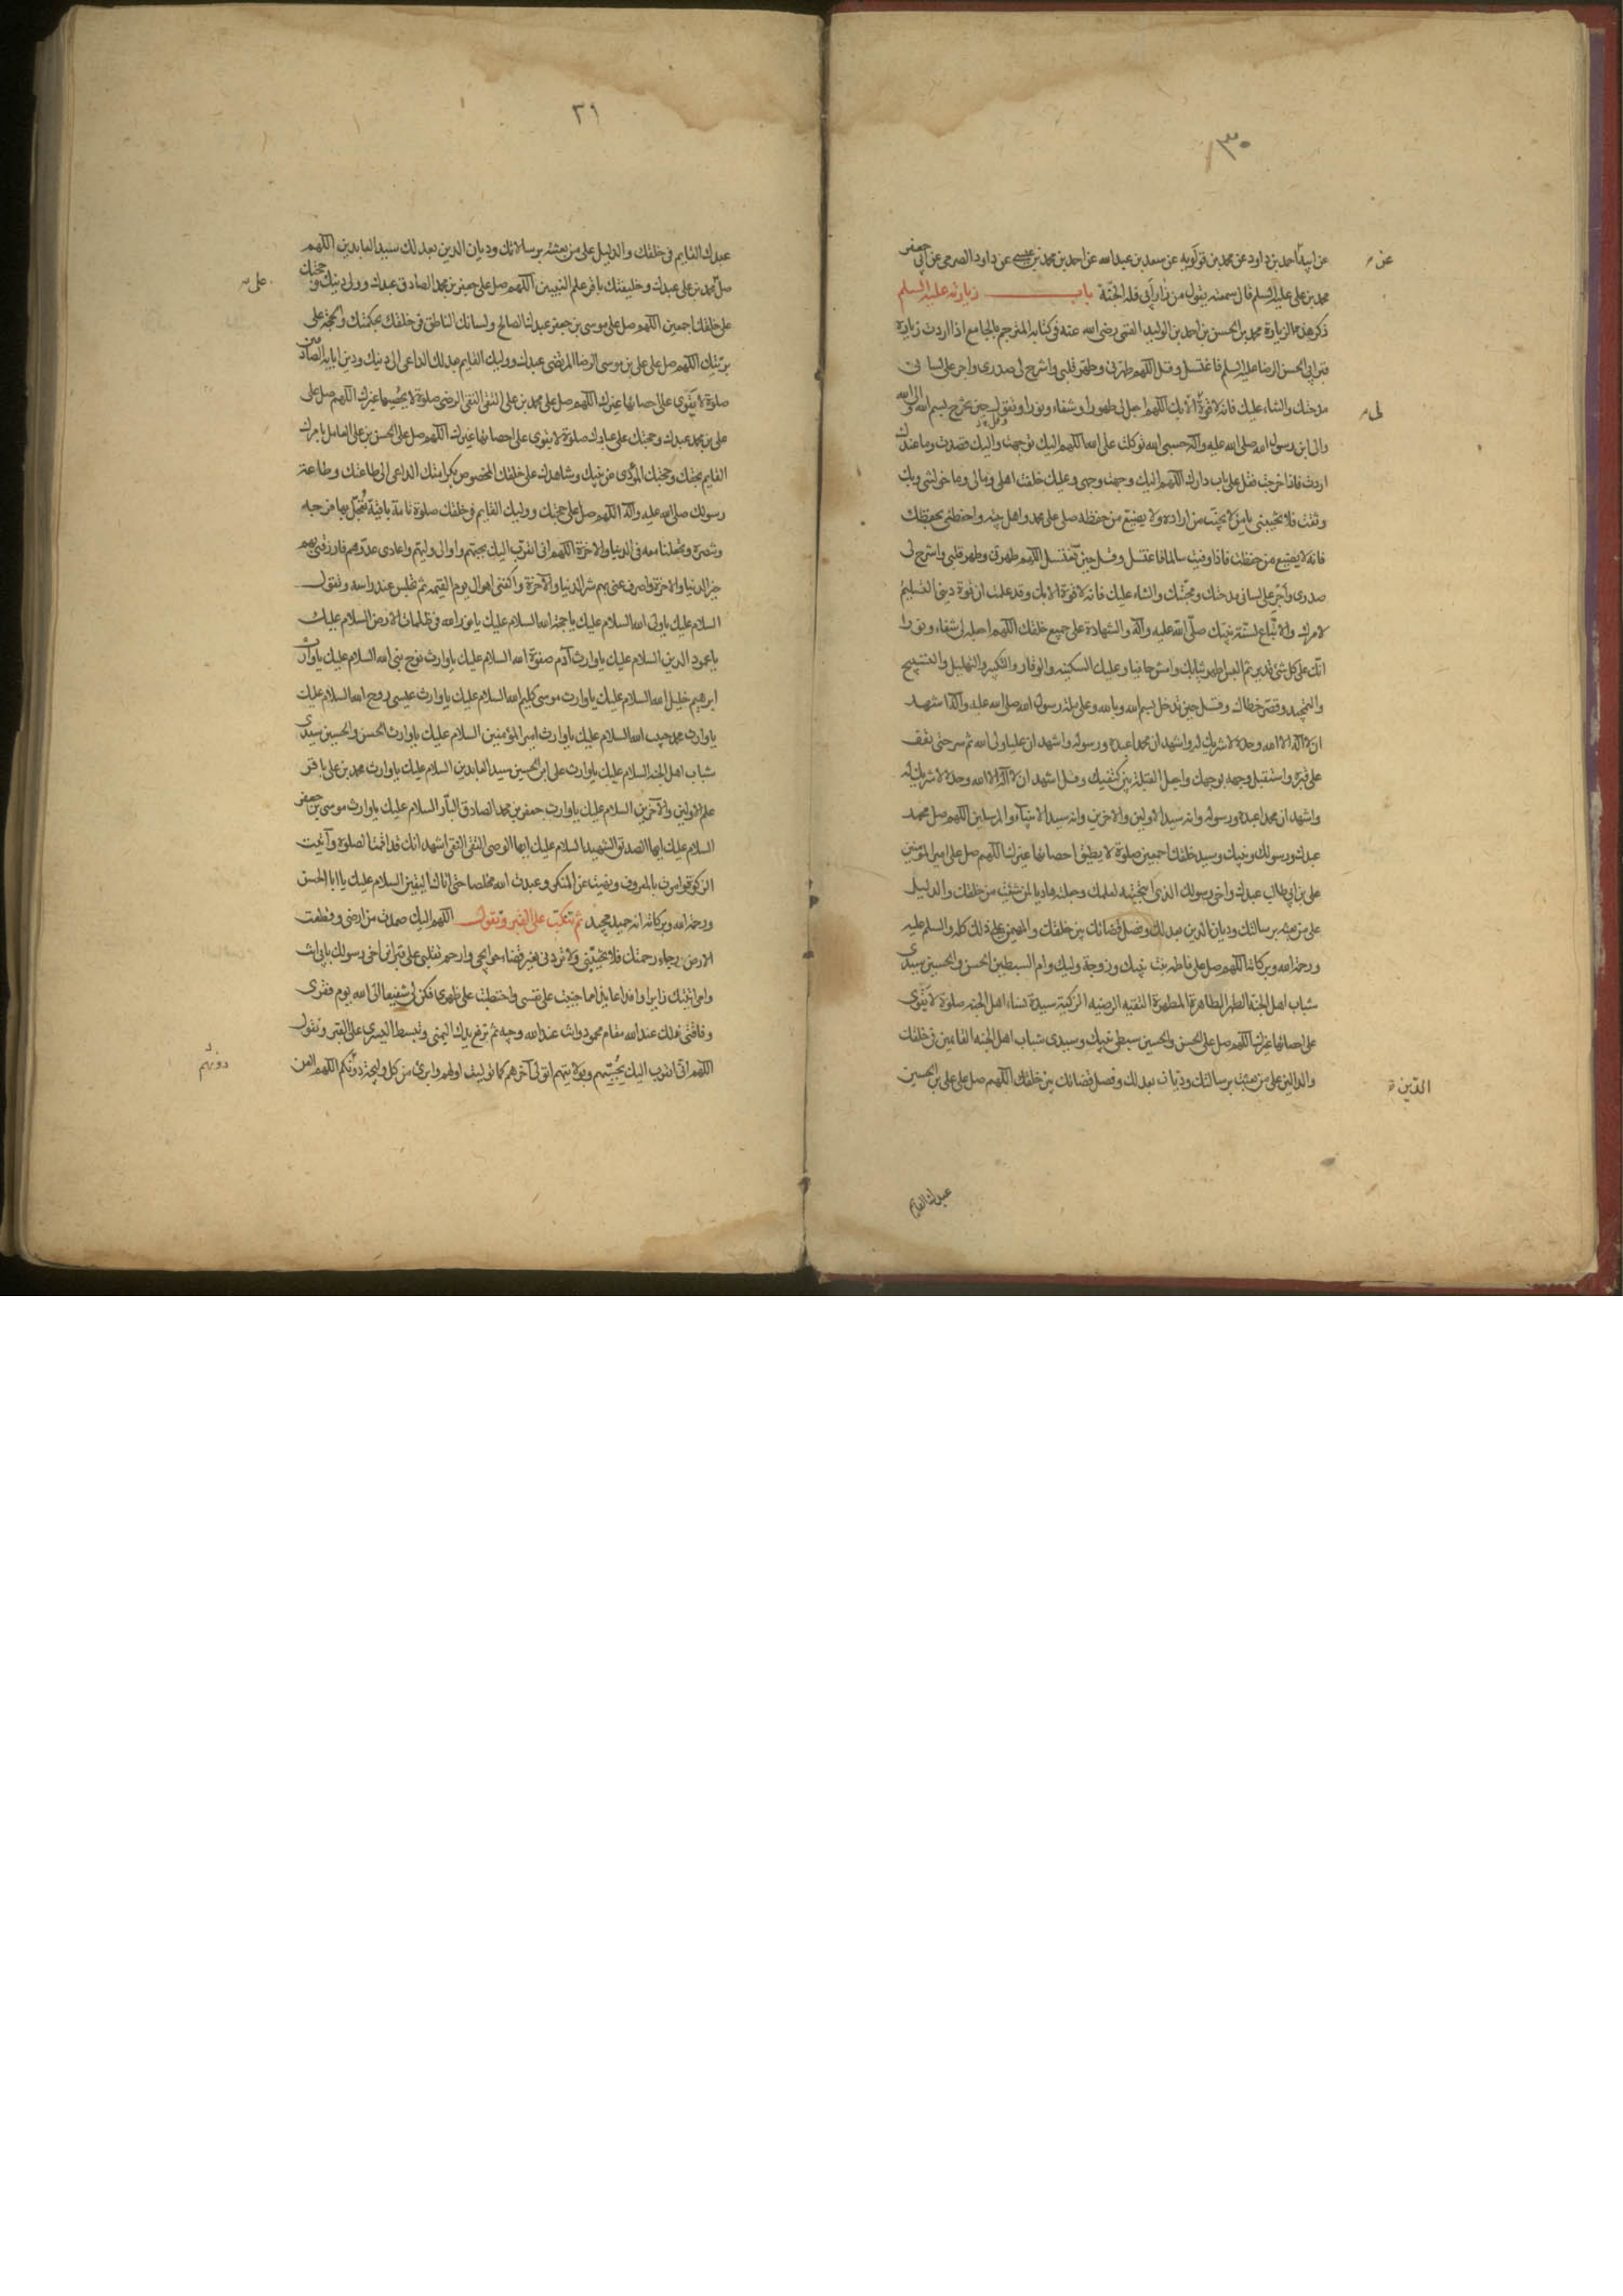 ٣٠
عن ابيه احمد بن داود عن محمد بن قولويه عن سعد بن عبدالله عن احمد بن محمد بن عيسى عن داود الصرمى عن ابى جعفر
عن
محمد بن على عليه السلم قال سمعته يقول من زار ابى فله الجنة باب زيارته عليه السلم
ذكر هذه الزيارة محمد بن الحسن بن احمد بن الوليد القمى رضى الله عنه فى كتابه المترجم بالجامع اذا اردت زيارة
قبر ابى الحسن الرضا عليه السلم فاغتسل وقل اللهم طهرنى وطهر قلبى واشرح لى صدرى واجر على لسانى
مدحتك والثناء عليك فانه لا قوة الا بك اللهم اجعل لى طهورا وشفاء ونورا وتقول حين تخرج بسم الله و الى الله
لى
والى ابن رسول الله صلى الله عليه وآله حسبى الله توكلت على الله اللهم اليك توجهت واليك قصدت وما عندك
اردت فاذا خرجت فقل على باب دارك اللهم اليك وجهت وجهى وعليك خلفت اهلى ومالى وما خولتنى وبك
وثقت فلا تخيبنى يا من لا يخيب من اراده ولا يضيع من حفظه صلى على محمد واهل بيته واحفظنى بحفظك
فانه لا يضيع من حفظت فاذا وفيت سالما فاغتسل وقل حين تغتسل اللهم طهرنى وطهر قلبى واشرح لى
صدرى واجر على لسانى مدحتك ومحبتك والثناء عليك فانه لا قوة الا بك وقد علمت ان قوة دينى التسليم
لامرك والاتباع لسنة نبيك صلى الله عليه وآله والشهادة على جميع خلقك اللهم اجعله لى شفاء ونورا
انك على كل شئ قدير ثم البس اطهر ثيابك وامش حافيا وعليك السكينه والوقار والتكبير والتهليل والتسبيح
والتمجيد وقصر خطاك وقل حين تدخل بسم الله وبالله وعلى ملة رسول الله صلى الله عليه وآله اشهد
ان لا اله الا الله وحده لا شريك له واشهد ان محمدا عبده ورسوله واشهد ان عليا ولى الله ثم سر حتى تقف
على قبره واستقبل وجهه بوجهك واجعل القبلة بين كتفيك وقل اشهد ان لا اله الا الله وحده لا شريك له
واشهد ان محمدا عبده ورسوله وانه سيد الاولين والاخرين وانه سيد الانبياء والمرسلين اللهم صل على محمد
عبدك ورسولك ونبيك وسيد خلقك اجمعين صلوة لا يطيق احصائها غيرك اللهم صل على امير المؤمنين
على بن ابى طالب عبدك واخى رسولك الذى انتجبته لعلمك وجعلته هاديا لمن شئت من خلقك والدليل
على من بعثته برسالتك وديان الدين بعدلك وفصل قضائك بين خلقك والمهيمن على ذلك كله والسلم عليه
ورحمة الله وبركاته اللهم صل على فاطمة بنت نبيك وزوجة وليك وام السبطين الحسن والحسين سيدى
شباب اهل الجنة الطهر الطاهرة المطهرة التقيه الرضيه الزكية سيدة نساء اهل الجنه صلوة لا يقوى
على احصائها غيرك اللهم صل على الحسن والحسين سبطى نبيك وسيدى شباب اهل الجنه القائمين فى خلقك
والدالين على من بعثت برسالتك وديان بعدلك وفصل قضائك بين خلقك اللهم صل على على بن الحسين
الدين
عبدك القايم
٣١
عبدك القايم فى خلقك والدليل على من بعثته برسالاتك وديان الدين بعدلك سيد العابدين اللهم
صل محمد بن على عبدك وخليفتك باقر علم النبيين اللهم صل على جعفر بن محمد الصادق عبدك وولى دينك وحجتك
على
على خلقك اجمعين اللهم صل على موسى بن جعفر عبدك الصالح ولسانك الناطق فى خلقك بحكمتك والحجة على
بريتك اللهم صل على على بن موسى الرضا المرتضى عبدك ووليك القايم بعدلك الداعى الى دينك ودين ابائه الصادقين
صلوة لا يقوى على احصائها غيرك اللهم صل على محمد بن على التقى النقى الرضى صلوة لا يحصيها غيرك اللهم صل على
على بن محمد عبدك وحجتك على عبادك صلوة لا يقوى على احصائها غيرك اللهم صل على الحسن بن على العامل بامرك
القايم بحجتك وحجتك المؤدى عن نبيك وشاهدك على خلقك المخصوص بكرامتك الداعى الى طاعتك وطاعة
رسولك صلى الله عليه وآله اللهم صل على حجتك ووليك القايم فى خلقك صلوة تامة باقية تعجل بها فرجه
ونصره وتجعلنا معه فى الدنيا والاخرة اللهم انى اتقرب اليك بحبهم واوالى وليهم واعادى عدوهم فارزقنى بهم
خير الدنيا والاخرة واصرف عنى بهم شر الدنيا والآخرة واكفنى اهوال يوم القيمه ثم تجلس عند راسه وتقول
السلام عليك يا ولى الله السلام عليك يا حجة الله السلام عليك يا نور الله فى ظلمات الارض السلام عليك
يا عمود الدين السلام عليك يا وارث آدم صفوة الله السلام عليك يا وارث نوح نبى الله السلام عليك يا وارث
ابرهيم خليل الله السلام عليك يا وارث موسى كليم الله السلام عليك يا وارث عيسى روح الله السلام عليك
يا وارث محمد حبيب الله السلام عليك يا وارث امير المؤمنين السلام عليك يا وارث الحسن والحسين سيدى
شباب اهل الجنة السلام عليك يا وارث على ابن الحسين سيد العابدين السلام عليك يا وارث محمد بن على باقر
علم الاولين والآخرين السلام عليك يا وارث جعفر بن محمد الصادق البار السلام عليك يا وارث موسى بن جعفر
السلام عليك ايها الصديق الشهيد السلام عليك ايها الوصى التقى النقى اشهد انك قد اقمت الصلوة وآتيت
الزكوة وامرت بالمعروف ونهيت عن المنكر وعبدت الله مخلصا حتى اتاك اليقين السلام عليك يا ابا الحسن
ورحمة الله وبركاته انه حميد مجيد ثم تنكب على القبر وتقول اللهم اليك صمدت من ارضى وقطعت
الارض رجاء رحمتك فلا تخيبنى ولا تردنى بغير قضاء حوايجى وارحم تقلبى على قبر ابن اخى رسولك بابى انت
وامى اتيتك زايرا وافدا عايذا مما جنيت على نفسى واحتطبت على ظهرى فكن لى شفيعا الى الله يوم فقرى
وفاقتى فلك عند الله مقام محمود وانت عند الله وجيه ثم ترفع يدك اليمنى وتبسط اليسرى على القبر وتقول
اللهم انى اتقرب اليك بحبهم وبولايتهم اتولى آخرهم كما توليت اولهم وابرئ من كل وليجة دونكم اللهم العن
دونهم